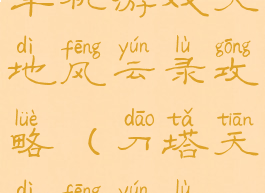 单机游戏天
dì fēng yún lù gōng
地风云录攻
lüè dāo tǎ tiān
略（刀塔天
dì fēng yún lù